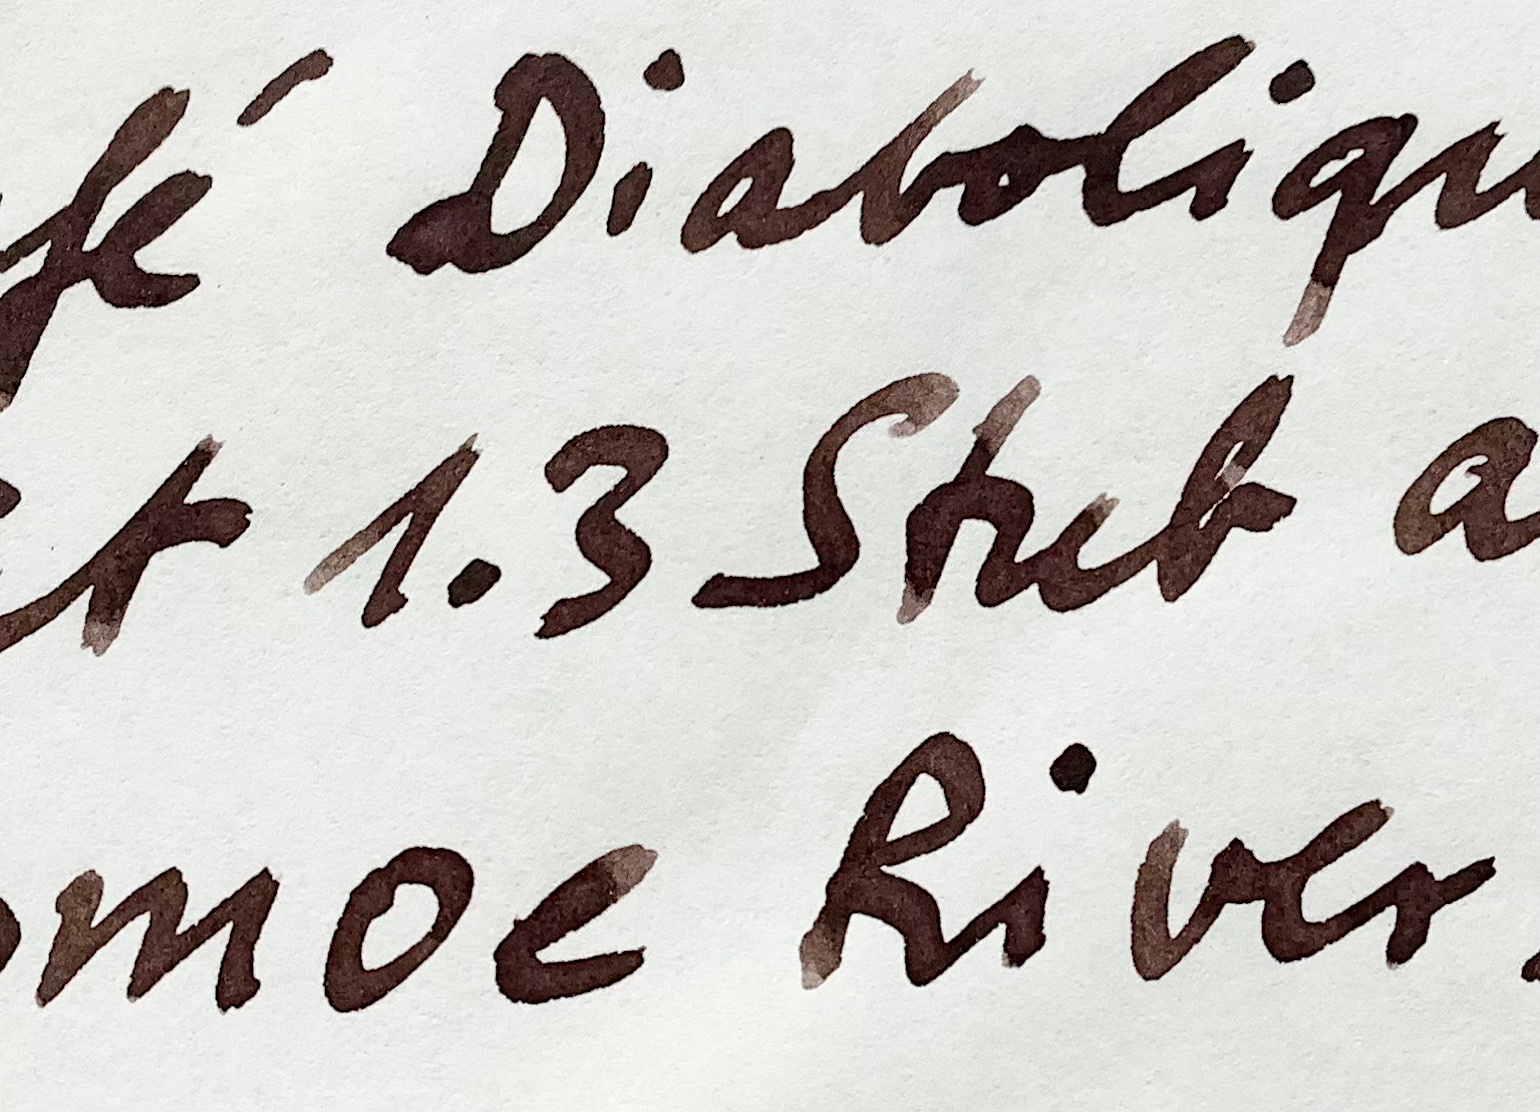 afé Diaboliqu
it 1.3 Stub a
omoe River